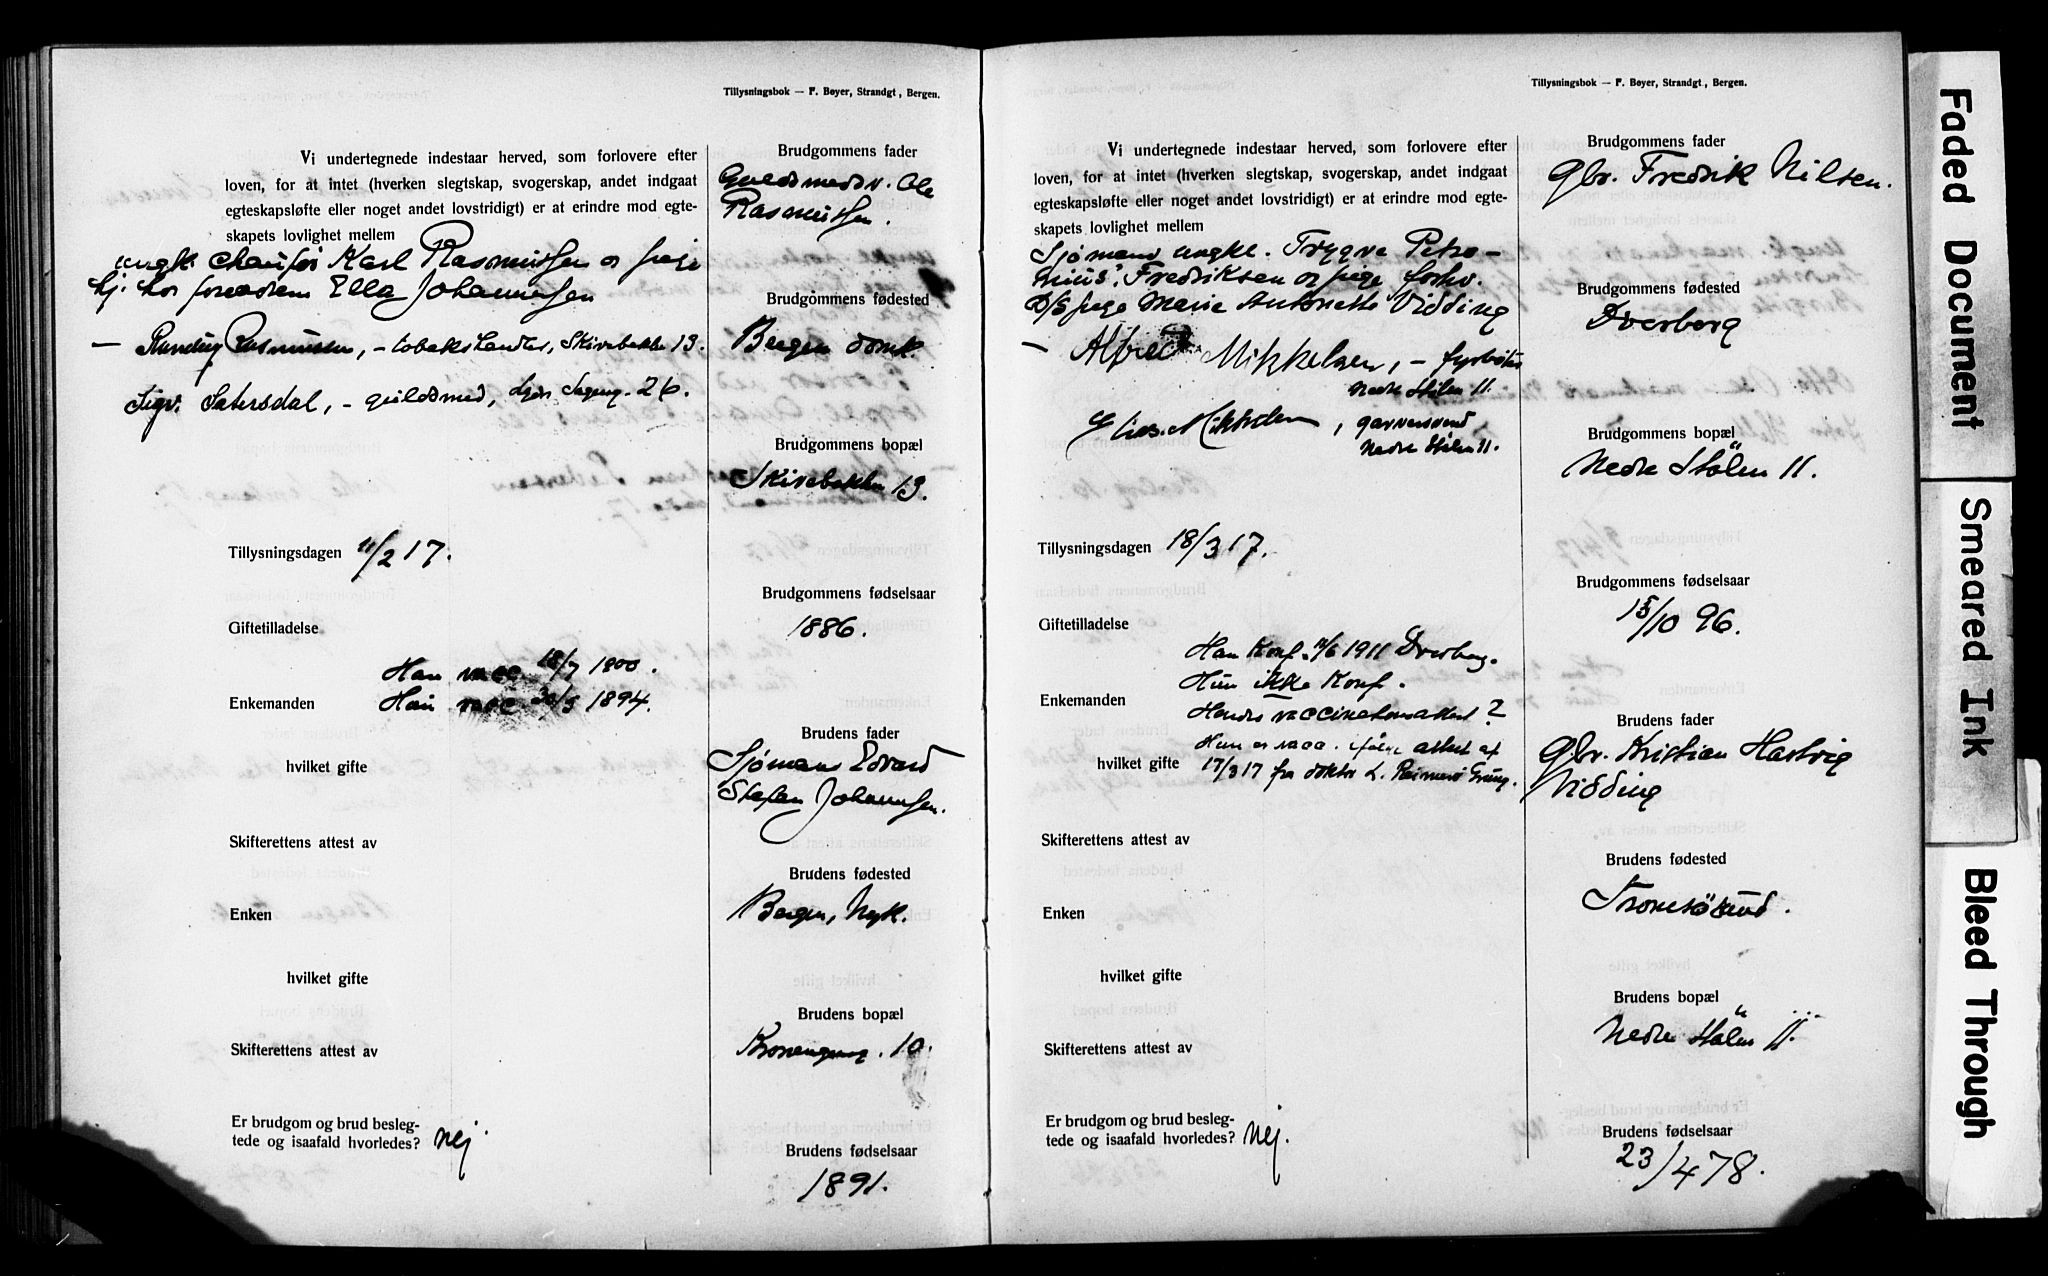 Tillysningsbok — F. Bøyer, Strandgt, Bergen.
Vi undertegnede indestaar herved, som forlovere efter
loven, for at intet (hverken slegtskap, svogerskap, andet indgaat
egteskapsløfte eller noget andet lovstridigt) er at erindre mod egte-
skapets lovlighet mellem
ungk. chaufør Karl Rasmussen og pige
hj. hos forældrene Ella Johannesen
— Rasmussen, - tobakshandler, Skivebakken 13.
Sigv. Sætersdal, - guldsmed, 26.
Tillysningsdagen 11/2 17.
Giftetilladelse
Han vacc 18/7 1900.
Enkemanden Hun vacc 30/5 1894.
hvilket gifte
Skifterettens attest av
Enken
hvilket gifte
Skifterettens attest av
Er brudgom og brud besleg-
tede og isaafald hvorledes? Nej
Brudgommens fader
Guldsmedsv. Ole
Rasmussen.
Brudgommens fødested
Bergen domk.
Brudgommens bopæl
Skivebakken 13.
Brudgommens fødselsaar
1886.
Brudens fader
Sjømand Edvard
Stefan Johannesen.
Brudens fødested
Bergen, Nyk.
Brudens bopæl
10.
Brudens fødselsaar
1891.
Tillysningsbok — F. Bøyer, Strandgt, Bergen.
Vi undertegnede indestaar herved, som forlovere efter
loven, for at intet (hverken slegtskap, svogerskap, andet indgaat
egteskapsløfte eller noget andet lovstridigt) er at erindre mod egte-
skapets lovlighet mellem
Sjømand ungk. Trygve Petro-
nius Fredriksen og pige forhv.
D/S pige Marie Antonette Vidding
— Alfred Mikkelsen, - fyrbøter
Nedre Stølen 11.
Mikkelsen, garversvend
Nedre Stølen 11.
Tillysningsdagen 18/3 17.
Giftetilladelse
Han konf. 11/6 1911 Dverberg.
Hun ikke konf.
Enkemanden
Hendes vaccinationsattest?
Hun er vacc. ifølge attest af
hvilket gifte 17/3 17 fra doktor L. Grung.
Skifterettens attest av
Enken
hvilket gifte
Skifterettens attest av
Er brudgom og brud besleg-
tede og isaafald hvorledes? Nej.
Brudgommens fader
Gbr. Fredrik Nilsen.
Brudgommens fødested
Dverberg
Brudgommens bopæl
Nedre Stölen 11.
Brudgommens fødselsaar
15/10 96.
Brudens fader
Gbr. Kristian Hartvig
Vidding
Brudens fødested
Tromsösund.
Brudens bopæl
Nedre Stölen 11.
Brudens fødselsaar
23/4 78.
Faded Document
Smeared Ink
Bleed Through